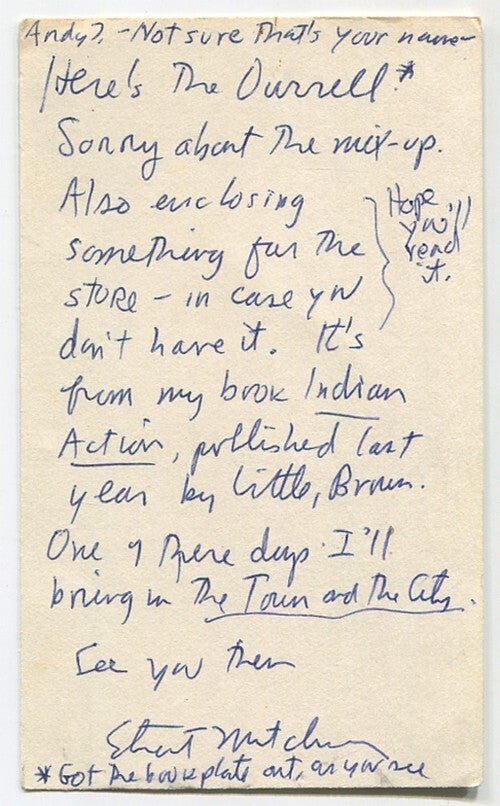 Andy? - Not sure that's your name -
Here's The Durrell.*
Sorry about the mix-up.
Also enclosing
something for the
store - in case you
don't have it. It's
from my book Indian
Action, published last
year by Little, Brown.
One of these days I'll
bring in The Town and the City.
See you then
Stuart Mitchner
Hope
you'll
read
it.
*Got the bookplate out, as you see